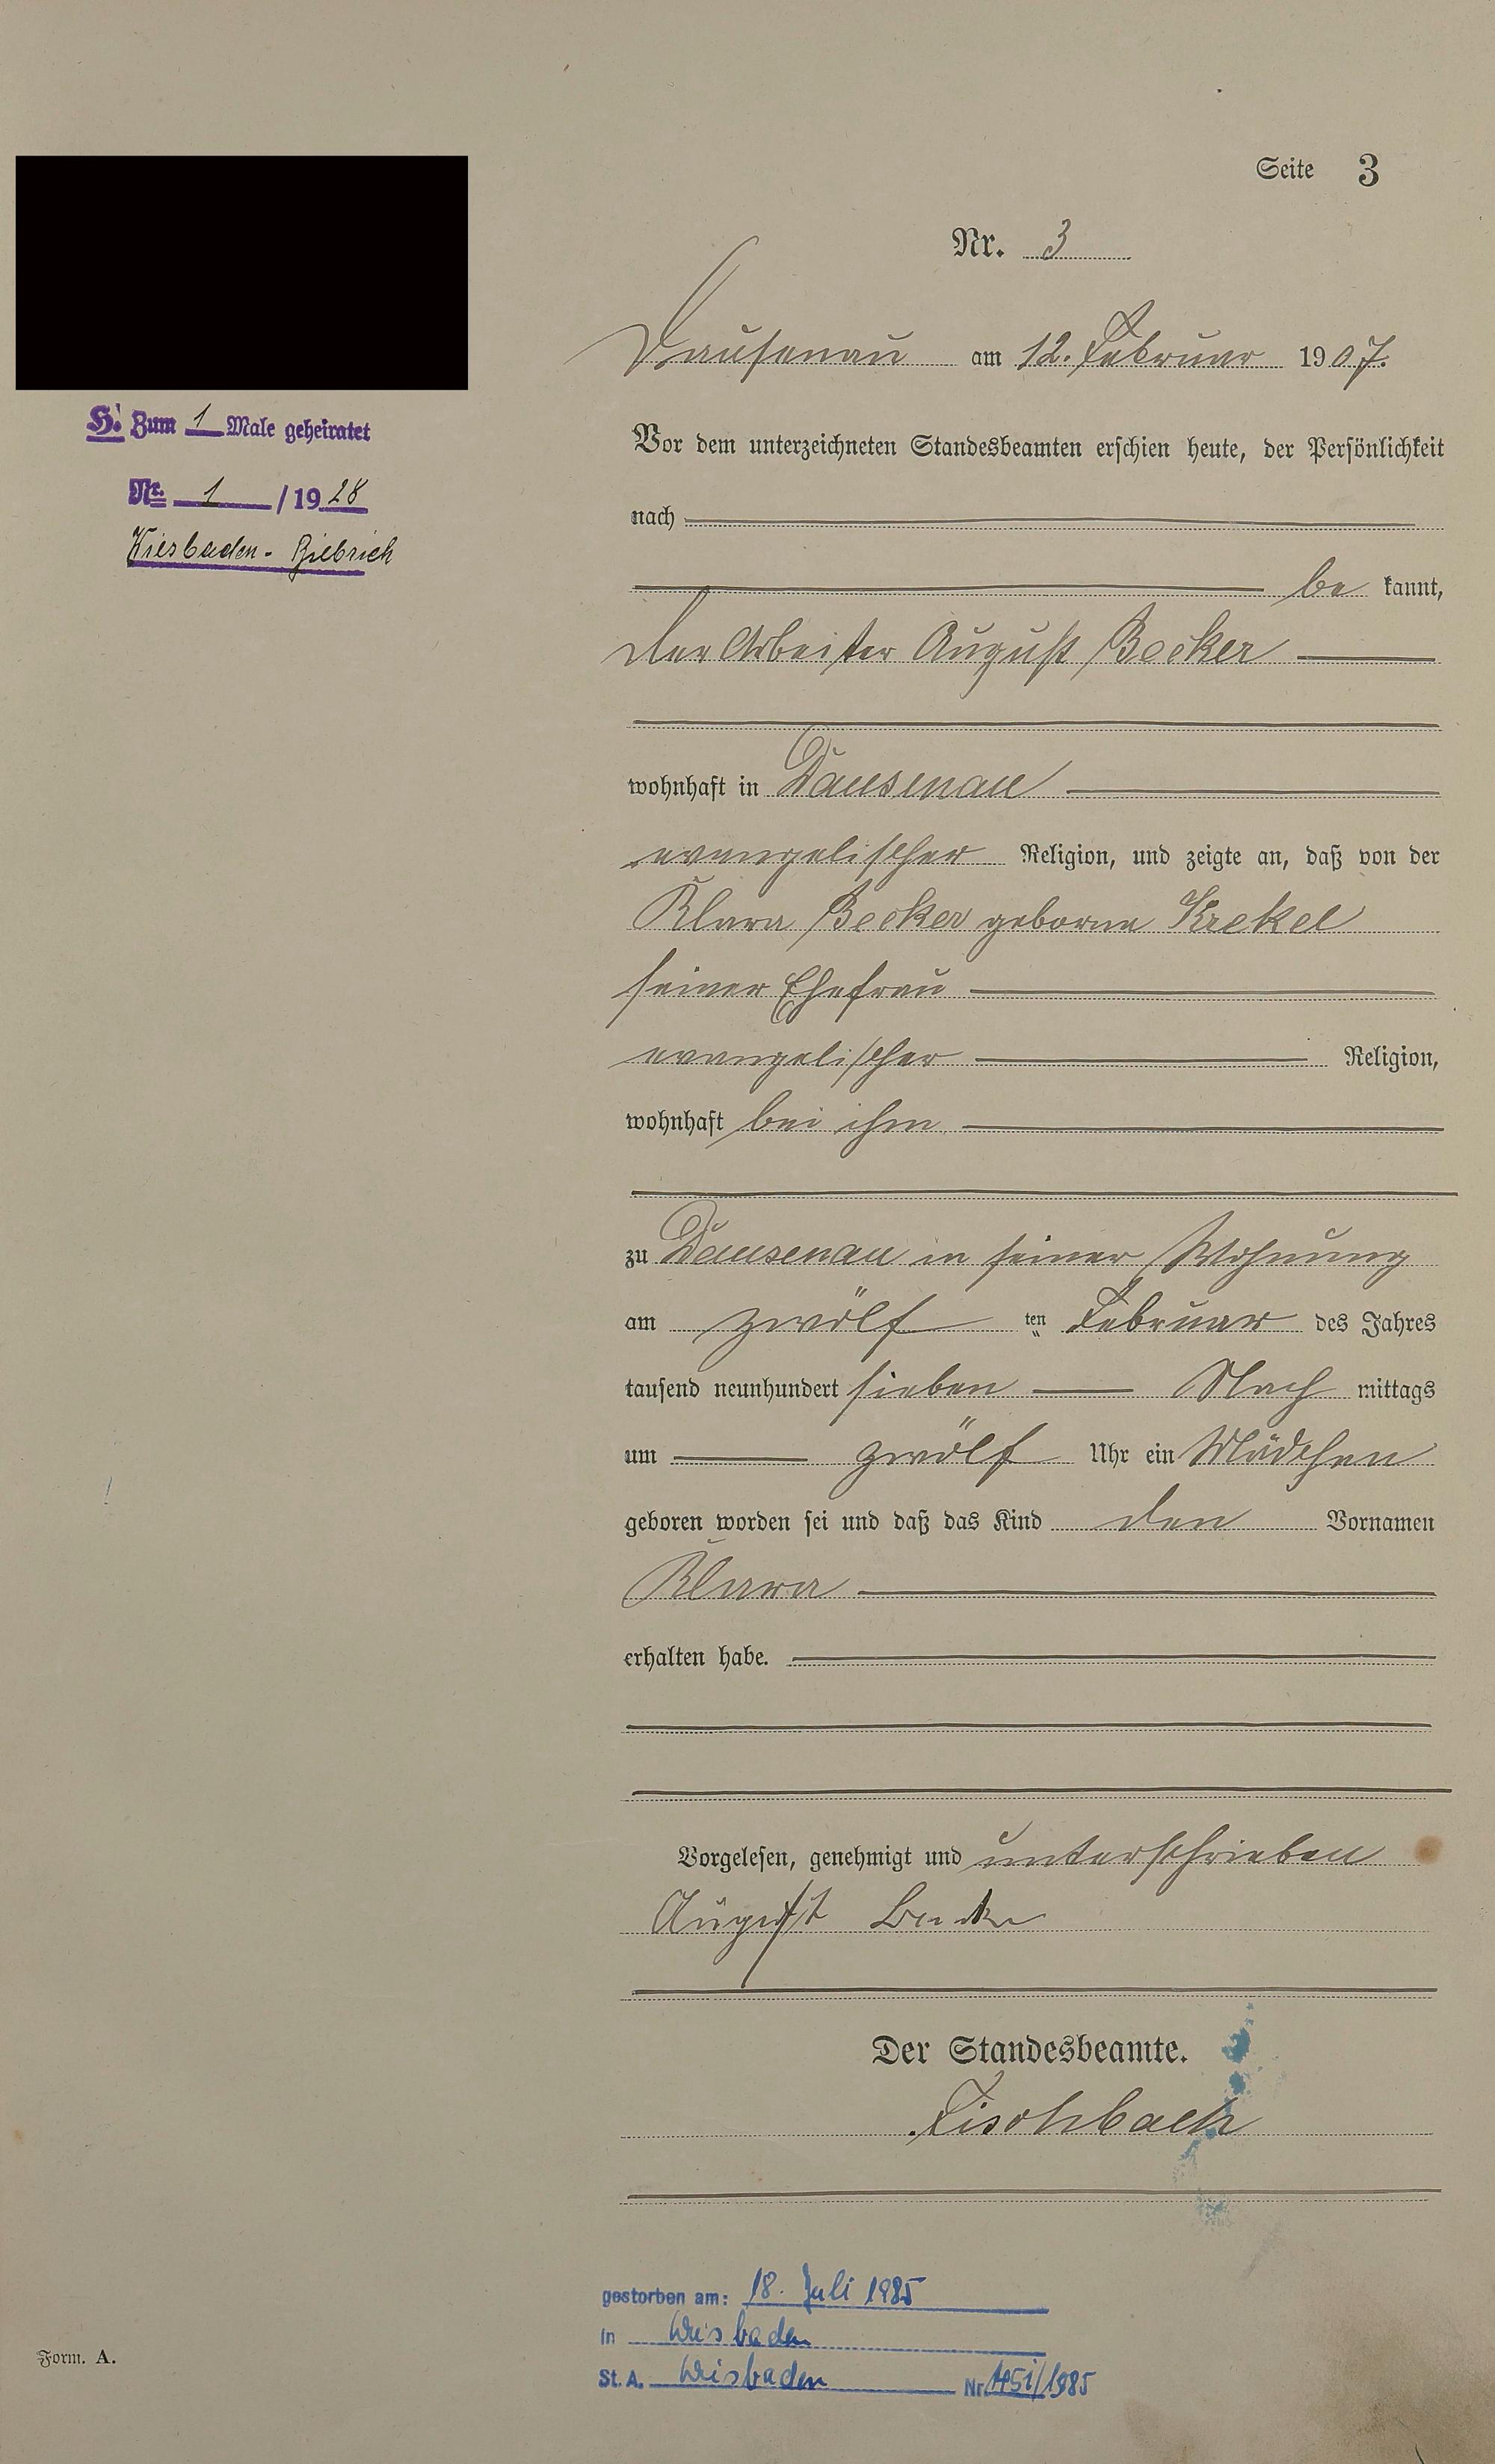 Seite 3
Nr. 3
Dausenau am 12. Februar 1907.
H. Zum 1 Male geheiratet
Nr. 1 / 1928
Wiesbaden-Biebrich
Vor dem unterzeichneten Standesbeamten erschien heute, der Persönlichkeit
nach
be kannt,
der Arbeiter August Becker
wohnhaft in Dausenau
evangelischer Religion, und zeigte an, daß von der
Klara Becker geborne Krekel
seiner Ehefrau
evangelischer Religion,
wohnhaft bei ihm
zu Dausenau in seiner Wohnung
am zwölf ten Februar des Jahres
tausend neunhundert sieben Nach mittags
um zwölf Uhr ein Mädchen
geboren worden sei und daß das Kind den Vornamen
Klara
erhalten habe.
Vorgelesen, genehmigt und unterschrieben
August Becker
Der Standesbeamte.
Fischbach
gestorben am: 18. Juli 1985
in Wiesbaden
St. A. Wiesbaden Nr. /1985
Form. A.